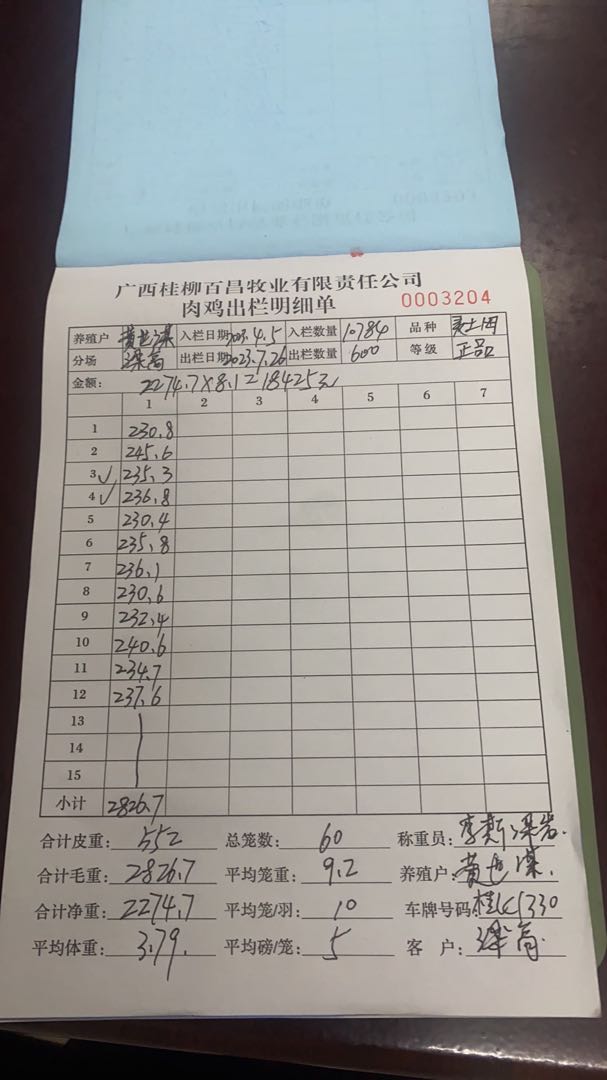 广西桂柳百昌牧业有限责任公司
肉鸡出栏明细单 0003204
养殖户 入栏日期 2023.4.5 入栏数量 10784 品种
分场 梁高 出栏日期 2023.7.26 出栏数量 600 等级 正品
金额: 2274.7×8.1=18425元
1 2 3 4 5 6 7
1 230.8
2 245.6
3 ✓ 235.3
4 ✓ 236.8
5 230.4
6 235.8
7 236.1
8 230.6
9 232.4
10 240.6
11 234.7
12 237.6
13
14
15
小计 2826.7
合计皮重: 552 总笼数: 60 称重员:
合计毛重: 2826.7 平均笼重: 9.2 养殖户:
合计净重: 2274.7 平均笼/羽: 10 车牌号码:
平均体重: 3.79. 平均磅/笼: 5 客 户: 梁高.